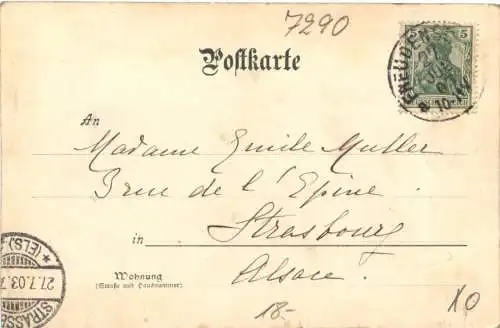 7290
Postkarte
5
FREUDENS
An
Madame Emile Muller
3 rue de l'Epine
Strasbourg
in
Alsace
Wohnung
(Straße und Hausnummer)
* (ELS)
27.7.03.7
STRASSB
18.-
XO